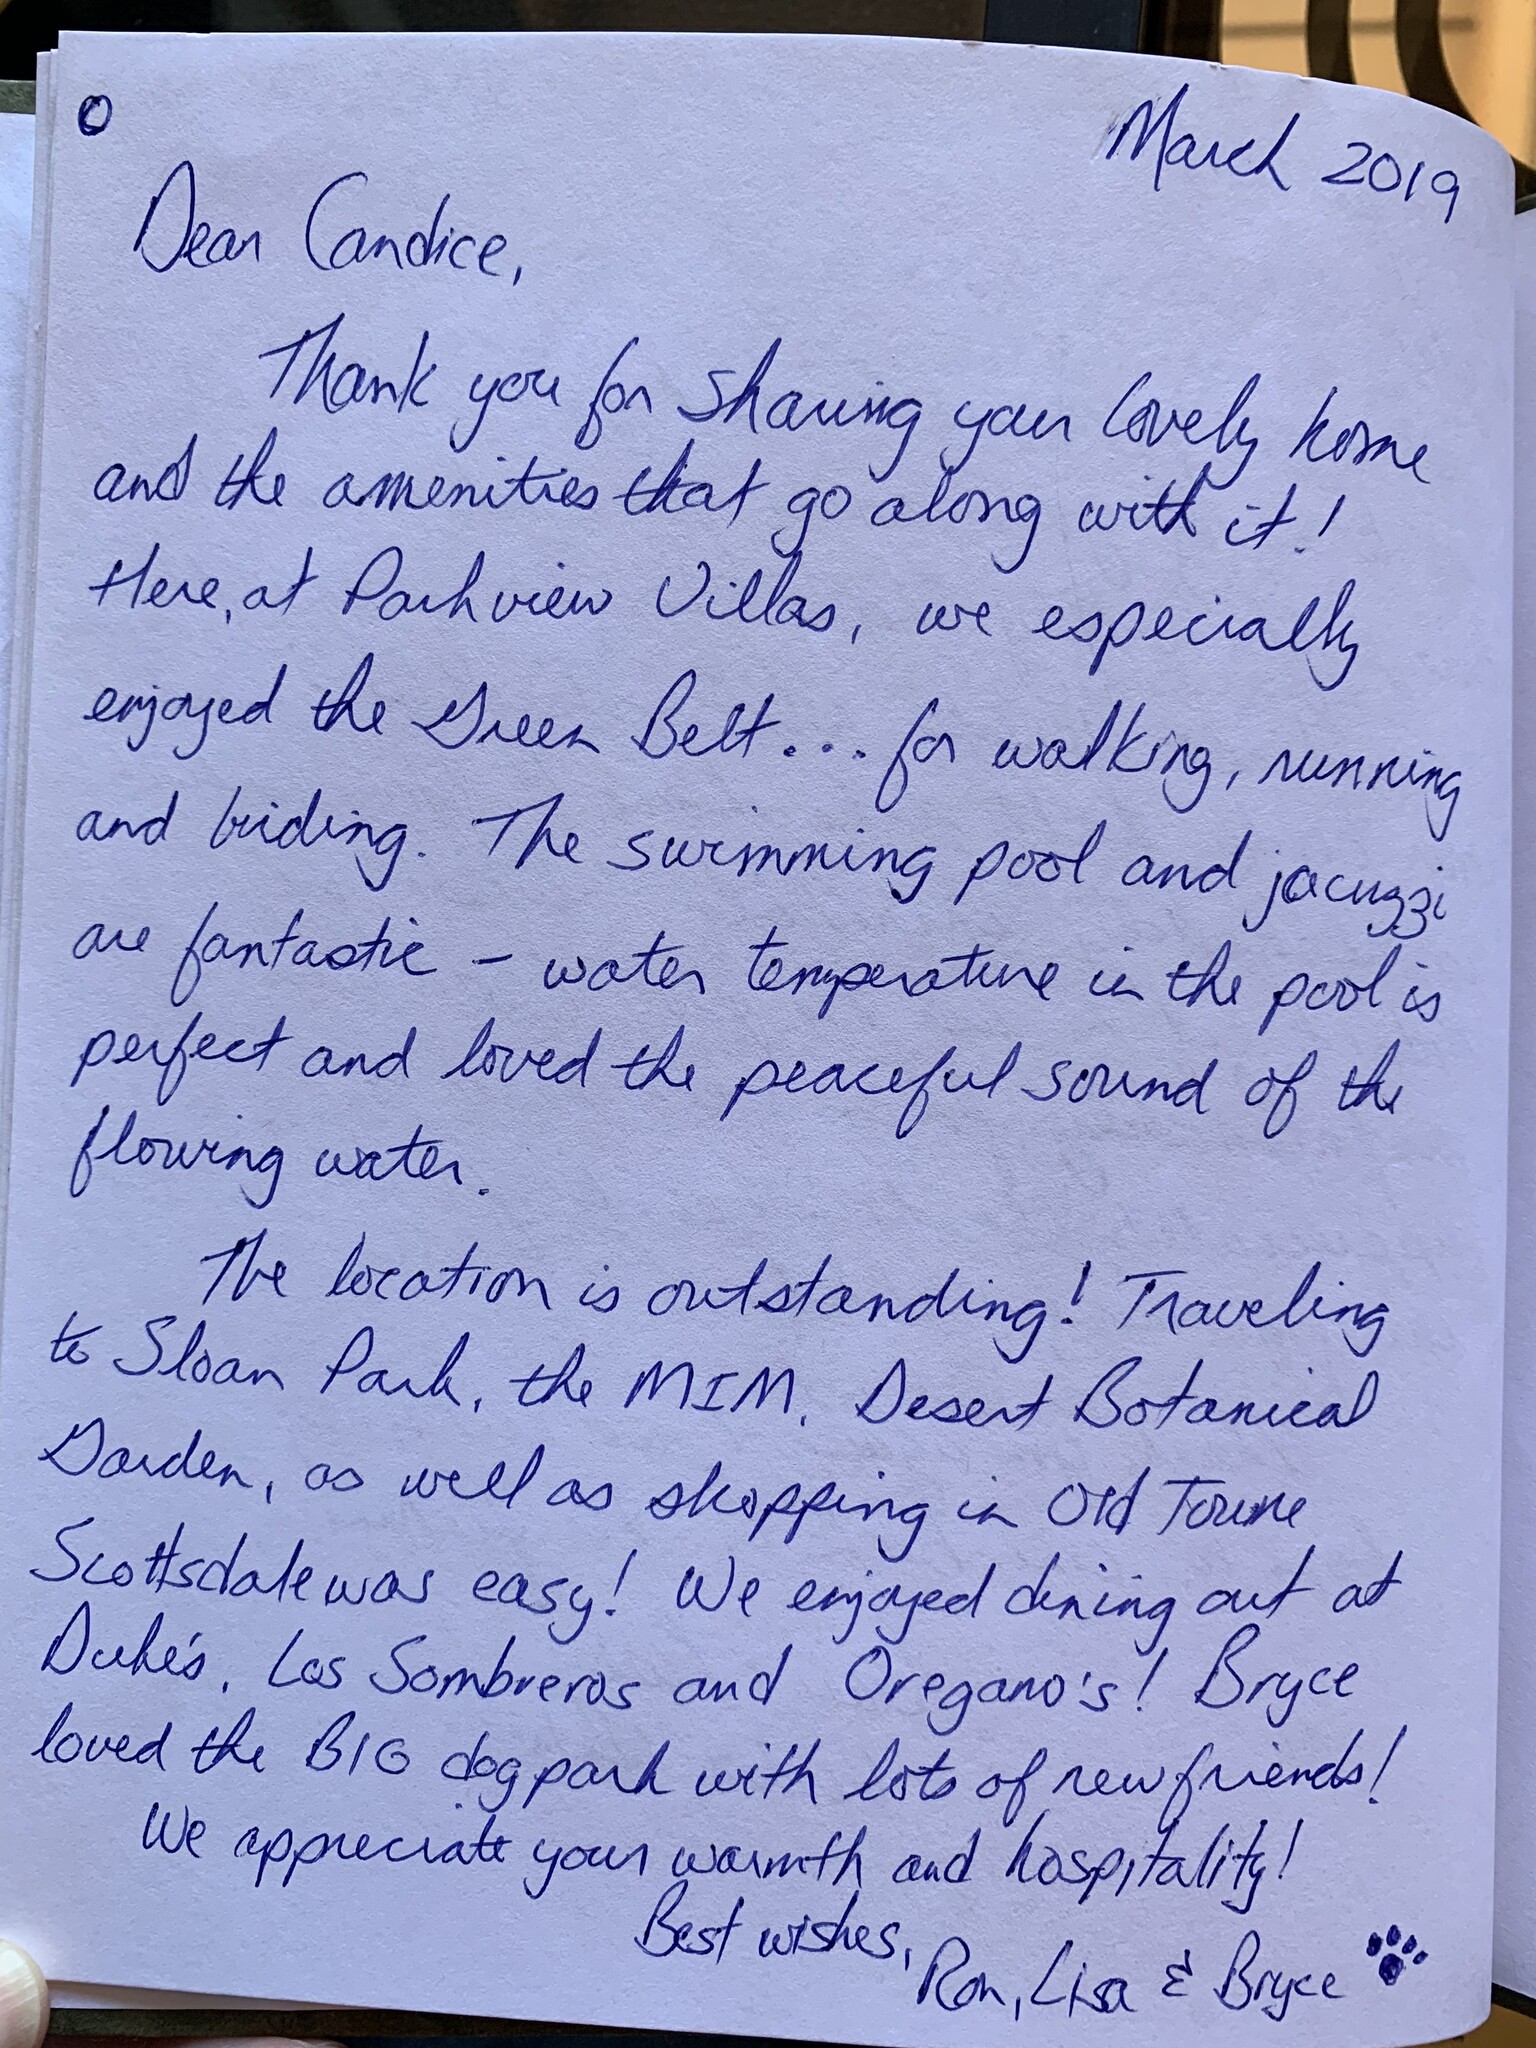 March 2019
Dear Candice,
Thank you for sharing your lovely home
and the amenities that go along with it!
Here, at Parkview Villas, we especially
enjoyed the Green Belt... for walking, running
and biding. The swimming pool and jacuzzi
are fantastic - water temperature in the pool is
perfect and loved the peaceful sound of the
flowing water.
The location is outstanding! Traveling
to Sloan Park, the MIM, Desert Botanical
Garden, as well as shopping in Old Towne
Scottsdale was easy! We enjoyed dining out at
Duke's, Los Sombreros and Oregano's! Bryce
loved the BIG dog park with lots of new friends!
We appreciate your warmth and hospitality!
Best wishes,
Ron, Lisa & Bryce